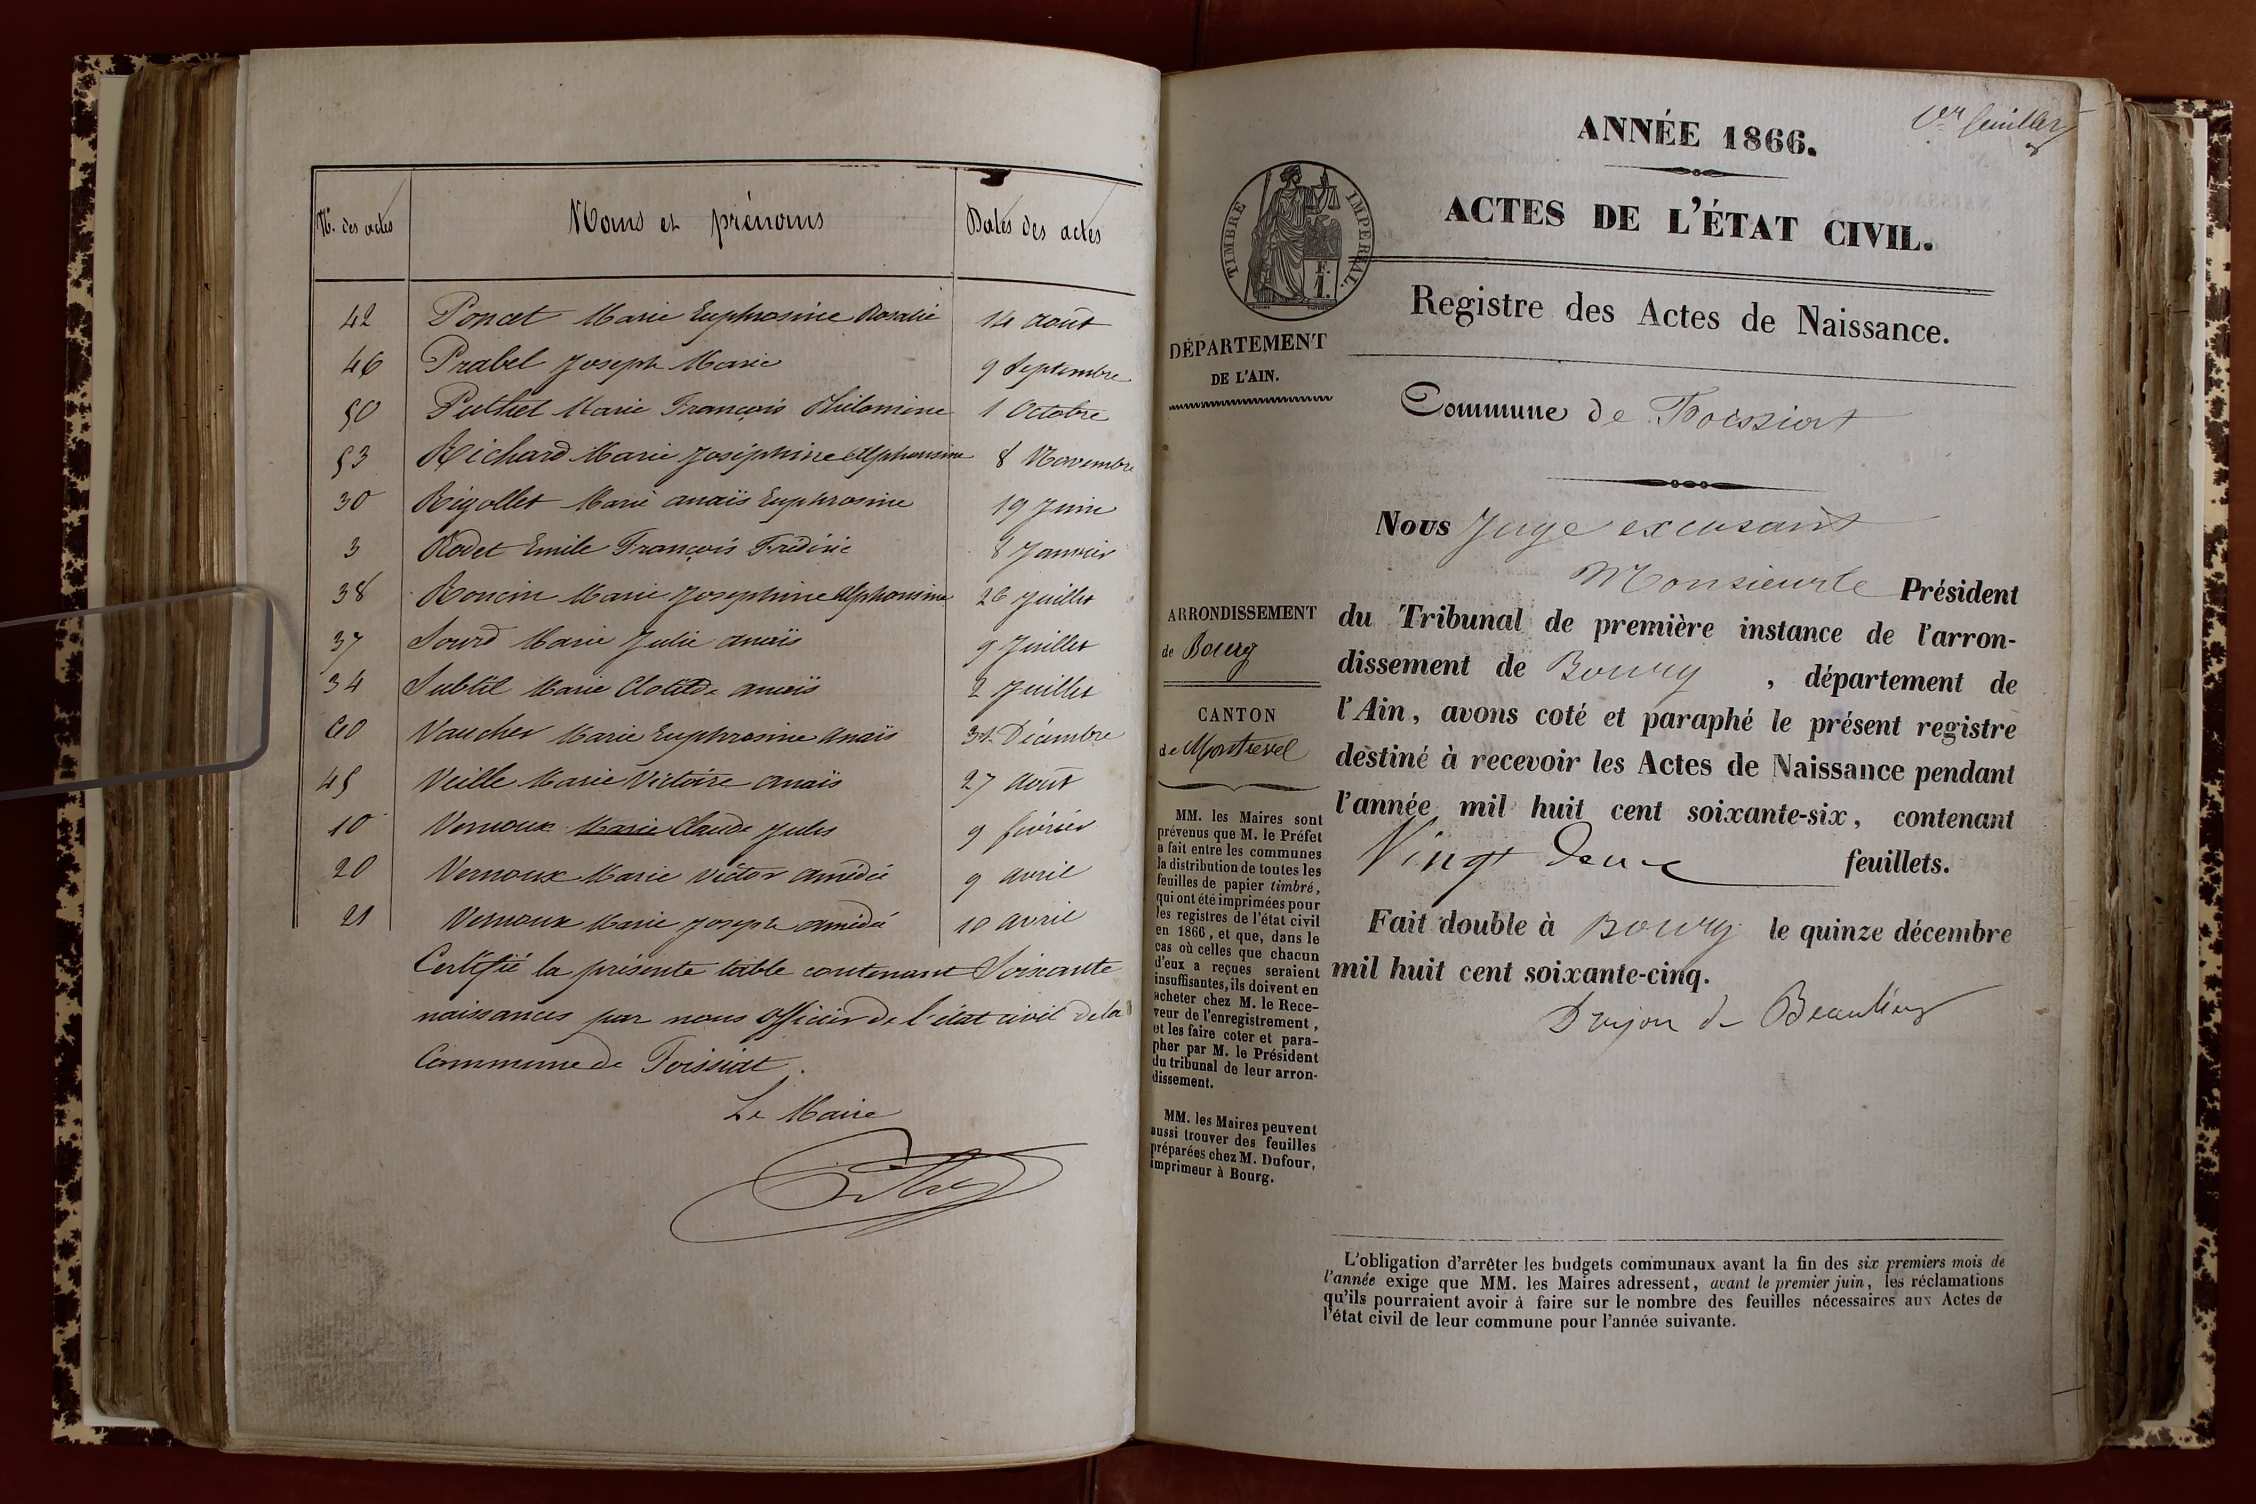 Nos. des actes Noms et prénoms Dates des actes
42 Poncet Marie Euphrosine Rosalie 14 août
46 Prabel Joseph Marie 9 Septembre
50 Puthet Marie François Philomine 1 Octobre
53 Richard Marie Joséphine Alphonsine 8 Novembre
30 Rigollet Marie anaïs Euphrosine 19 Juin
3 Rodet Emile François Frédéric 8 Janvier
38 Roncin Marie Josephine Alphonsine 26 Juillet
37 Sourd Marie Julie anaïs 9 Juillet
34 Subtil Marie Clotilde anaïs 2 Juillet
60 Vaucher Marie Euphrosine Anaïs 31 Décembre
45 Veille Marie Victoire anaïs 27 août
10 Vernoux Marie Claude Jules 9 février
20 Vernoux Marie Victor amédée 9 avril
21 Vernoux Marie Joseph amédé 10 avril
Certifié la présente table contenant Soixante
naissances par nous officier de l'état civil de la
Commune de Foissiat.
Le Maire
1er feuillet
ANNÉE 1866.
ACTES DE L'ÉTAT CIVIL.
TIMBRE IMPÉRIAL.
F.
1.
Registre des Actes de Naissance.
DÉPARTEMENT
DE L'AIN.
Commune de Foissiat
Nous Juge excusant
Monsieur le Président
du Tribunal de première instance de l'arron-
dissement de Bourg , département de
l'Ain, avons coté et paraphé le présent registre
destiné à recevoir les Actes de Naissance pendant
l'année mil huit cent soixante-six, contenant
Vingt deux feuillets.
Fait double à Bourg le quinze décembre
mil huit cent soixante-cinq.
Dujon de Beaulieu
ARRONDISSEMENT
de Bourg
CANTON
de Montrevel
MM. les Maires sont
prévenus que M. le Préfet
a fait entre les communes
la distribution de toutes les
feuilles de papier timbré,
qui ont été imprimées pour
les registres de l'état civil
en 1866, et que, dans le
cas où celles que chacun
d'eux a reçues seraient
insuffisantes, ils doivent en
acheter chez M. le Rece-
veur de l'enregistrement,
et les faire coter et para-
pher par M. le Président
du tribunal de leur arron-
dissement.
MM. les Maires peuvent
aussi trouver des feuilles
préparées chez M. Dufour,
imprimeur à Bourg.
L'obligation d'arrêter les budgets communaux avant la fin des six premiers mois de
l'année exige que MM. les Maires adressent, avant le premier juin, les réclamations
qu'ils pourraient avoir à faire sur le nombre des feuilles nécessaires aux Actes de
l'état civil de leur commune pour l'année suivante.